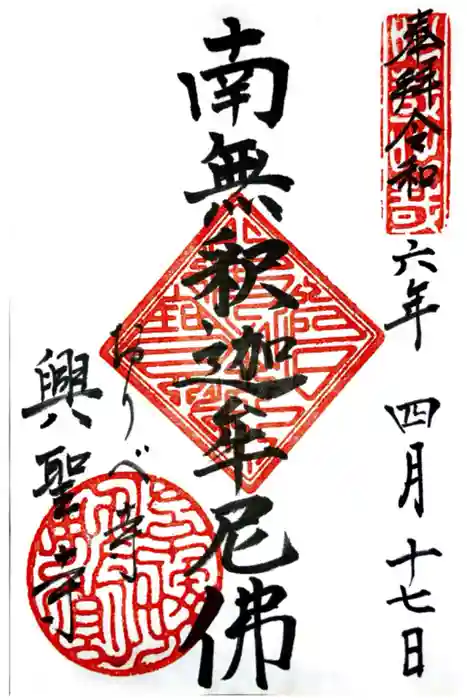 奉拜令和六年四月十七日
南無釈迦牟尼佛
おりべ寺
興聖寺